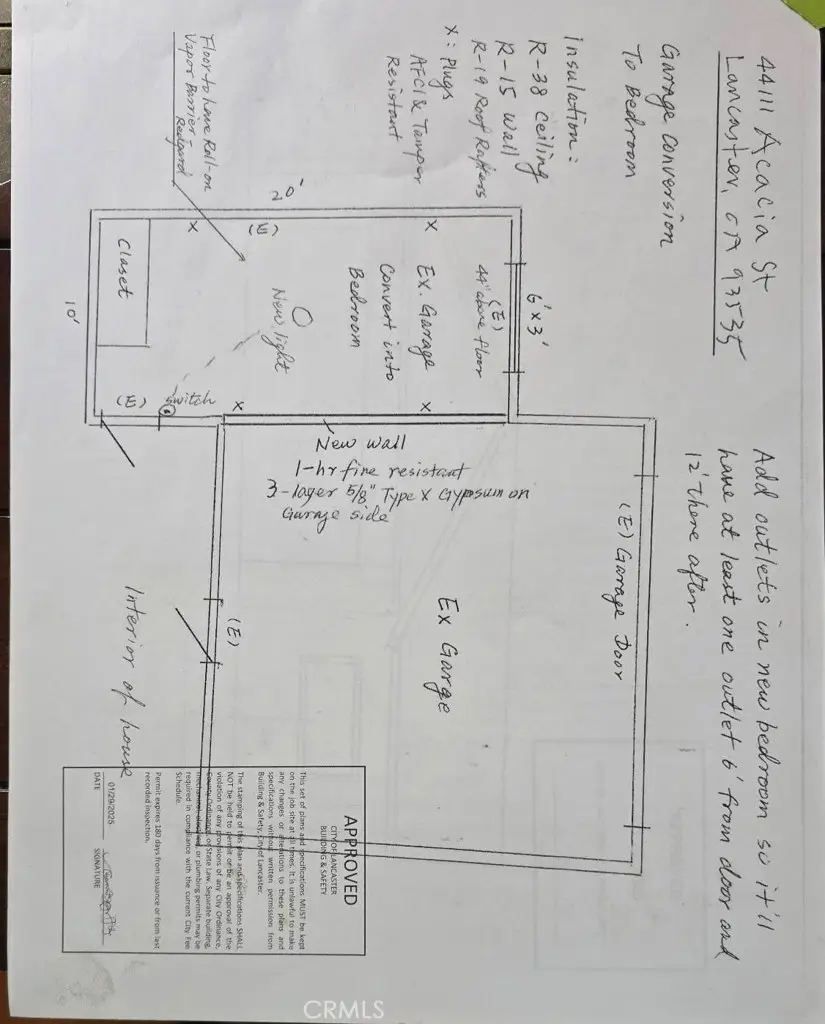 44111 Acacia St
Lancaster, CA 93535
Garage Conversion
To Bedroom
Insulation:
R-38 Ceiling
R-15 Wall
R-19 Roof Rafters
X: Plugs
AFCI & Tamper
Resistant
Floor to have Roll-on
Vapor Barrier -
Redgard
Add outlets in new bedroom so it'll
have at least one outlet 6' from door and
12' there after.
20'
10'
6' x 3'
(E)
44" above floor
X
(E)
X
Closet
Ex. Garage
Convert into
Bedroom
New light
(E)
Switch
X
X
New wall
1-hr fire resistant
3-layer 5/8" Type X Gypsum on
Garage side
(E) Garage Door
Ex Garge
(E)
Interior of house
APPROVED
CITY OF LANCASTER
BUILDING & SAFETY
This set of plans and specifications MUST be kept
on the job site at all times. It is unlawful to make
any changes or alterations to these plans and
specifications without written permission from
Building & Safety, City of Lancaster.
The stamping of this plan and specifications SHALL
NOT be held to permit or be an approval of the
violation of any provisions of any City Ordinance,
County Ordinance, or State Law. Separate building,
mechanical, electrical, or plumbing permits may be
required in compliance with the current City Fee
Schedule.
Permit expires 180 days from issuance or from last
recorded inspection.
01/29/2025
DATE
SIGNATURE
CRMLS